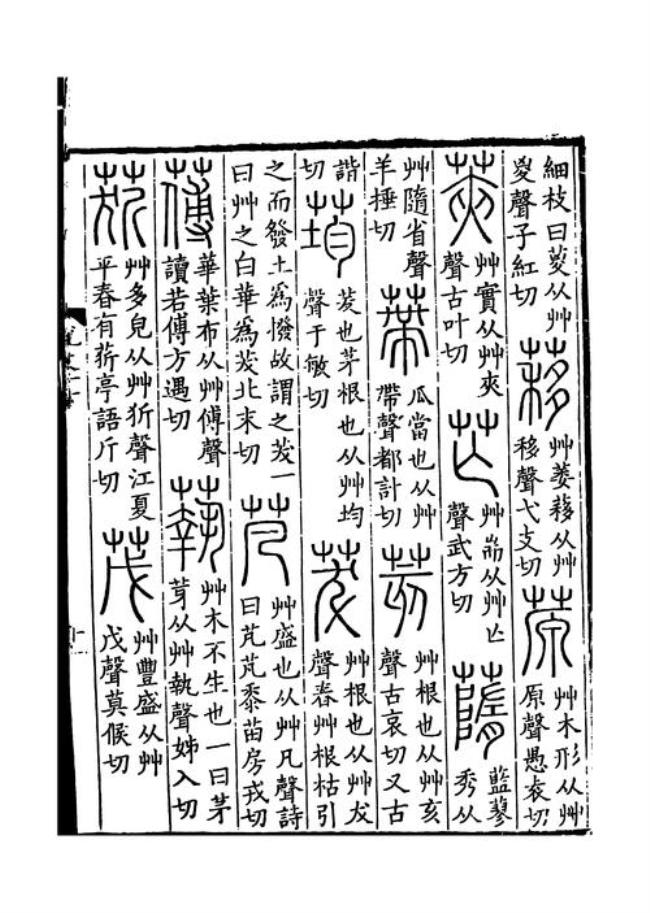 細枝曰葼从艸
㚇聲子紅切
䔟
艸萎䔟从艸
移聲弋支切
蒝
艸木形从艸
原聲愚袁切
莢
艸實从艸夾
聲古叶切
芒
艸耑从艸亡
聲武方切
藍蓼
秀从
艸隨省聲
羊捶切
蔕
瓜當也从艸
帶聲都計切
荄
艸根也从艸亥
聲古哀切又古
諧
切
荺
茇也茅根也从艸均
聲于敏切
茇
艸根也从艸犮
聲春艸根枯引
之而發土爲撥故謂之茇一
曰艸之白華爲茇北末切
芃
艸盛也从艸凡聲詩
曰芃芃黍苗房戎切
華葉布从艸傅聲
讀若傅方遇切
蓻
艸木不生也一曰茅
芽从艸執聲姊入切
艸多皃从艸㹞聲江夏
平春有亭語斤切
茂
艸豐盛从艸
戊聲莫候切